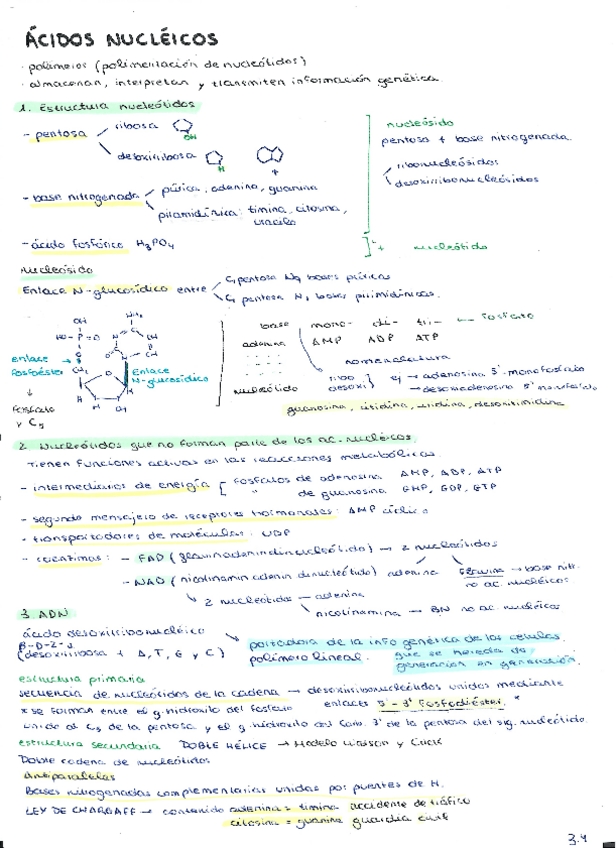 ÁCIDOS NUCLÉICOS
· polímeros (polimerización de nucleótidos)
· almacenan, interpretan y transmiten información genética.
1. Estructura nucleótidos
- pentosa
ribosa
OH
desoxirribosa
H
+
- base nitrogenada
púrica, adenina, guanina
pirimidínica: timina, citosina,
uracilo
- ácido fosfórico H₃PO₄
nucleósido
pentosa + base nitrogenada
ribonucleósidos
desoxirribonucleósidos
+ nucleótido
Nucleósido
Enlace N-glucosídico entre
C₁ pentosa N₉ bases púricas
C₁ pentosa N₁ bases pirimidínicas.
enlace
fosfoéster
Enlace
N-glucosídico
↓
fosfato
y C₅
base mono- di- tri- ← fosfato
adenina AMP ADP ATP
nomenclatura
nucleótido
ribo
desoxi
ej → adenosina 5'-monofosfato
→ desoxiadenosina 5'
guanosina, citidina, uridina, desoxitimidina
2. Nucleótidos que no forman parte de los ac. nucléicos.
Tienen funciones activas en las reacciones metabólicas.
- intermediarios de energía [ fosfatos de adenosina AMP, ADP, ATP
" de guanosina GMP, GDP, GTP
- segundo mensajero de receptores hormonales: AMP cíclico
- transportadores de moléculas: UDP
- coenzimas: - FAD ( ) → 2 nucleótidos
adenina
→ base nitr.
no ac. nucléicos
- NAD (nicotinamin adenin dinucleótido)
2 nucleótidos → adenina
nicotinamina → BN no ac. nucléicos
3. ADN
ácido desoxirribonucléico
(desoxirribosa + A, T, G y C)
portadora de la info genética de las células.
polímero lineal. que se hereda de
generación en generación.
estructura primaria
secuencia de nucleótidos de la cadena → desoxirribonucleótidos unidos mediante
enlaces 5'-3' Fosfodiéster. *
* se forman entre el g. hidroxilo del fosfato
unido al C₅ de la pentosa y el g. hidroxilo del Carb. 3' de la pentosa del sig. nucleótido.
estructura secundaria DOBLE HÉLICE → Modelo Watson y Crick
Doble cadena de nucleótidos
Antiparalelas
Bases nitrogenadas complementarias unidas por puentes de H.
LEY DE CHARGAFF → contenido adenina = timina accidente de tráfico
citosina = guanina guardia civil
3.4